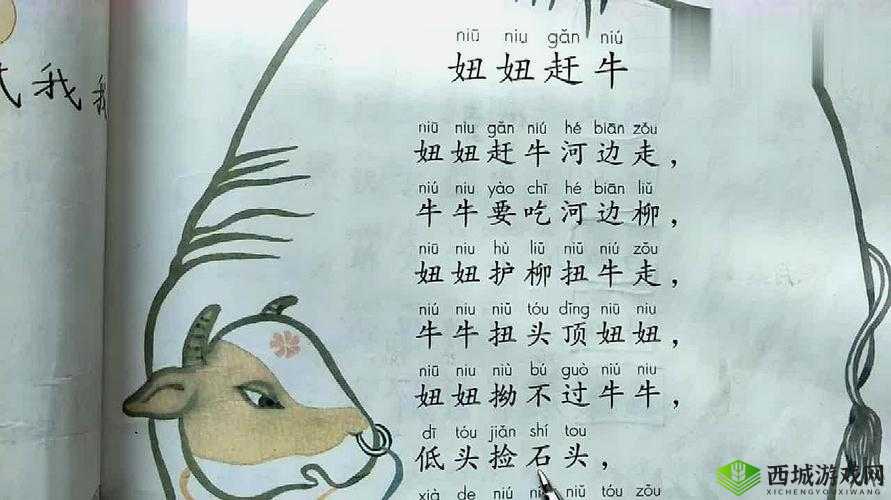 我我
niū niu gǎn niú
妞妞赶牛
niū niu gǎn niú hé biān zǒu
妞妞赶牛河边走，
niú niu yào chī hé biān liǔ
牛牛要吃河边柳，
niū niu hù liǔ niǔ niú zǒu
妞妞护柳扭牛走，
niú niu niǔ tóu dǐng niū niu
牛牛扭头顶妞妞，
niū niu niù bú guò niú niu
妞妞拗不过牛牛，
dī tóu jiǎn shí tou
低头捡石头，
xià de niú niu niǔ tóu zǒu
西城游戏网
XICHENGYOUXIWANG